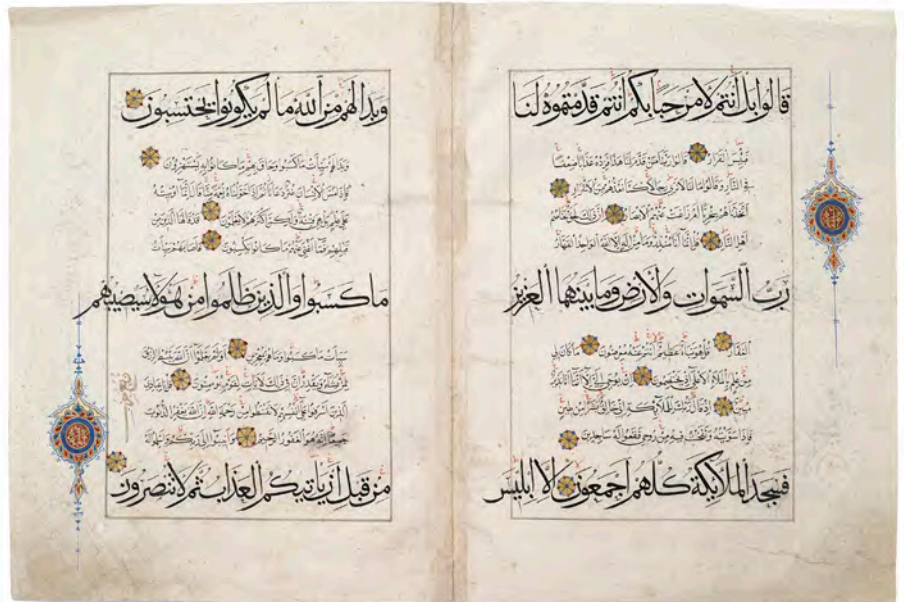 قالوا بل انتم لا مرحبا بكم انتم قدمتموه لنا
فبئس القرار قالوا ربنا من قدم لنا هذا فزده عذابا ضعفا
في النار وقالوا ما لنا لا نرى رجالا كنا نعدهم من الاشرار
اتخذناهم سخريا ام زاغت عنهم الابصار ان ذلك لحق تخاصم
اهل النار قل انما انا منذر وما من اله الا الله الواحد القهار
رب السموات والارض وما بينهما العزيز
الغفار قل هو نبأ عظيم انتم عنه معرضون ما كان لي
من علم بالملا الاعلى اذ يختصمون ان يوحى الي الا انما انا نذير
مبين اذ قال ربك للملائكة اني خالق بشرا من طين
فاذا سويته ونفخت فيه من روحي فقعوا له ساجدين
فسجد الملائكة كلهم اجمعون الا ابليس
وبدا لهم من الله ما لم يكونوا يحتسبون
وبدا لهم سيئات ما كسبوا وحاق بهم ما كانوا به يستهزؤن
فاذا مس الانسان ضر دعانا ثم اذا خولناه نعمة منا قال انما اوتيته
على علم بل هي فتنة ولكن اكثرهم لا يعلمون قد قالها الذين من
قبلهم فما اغنى عنهم ما كانوا يكسبون فاصابهم سيئات
ما كسبوا والذين ظلموا من هولا سيصيبهم
سيئات ما كسبوا وما هم بمعجزين اولم يعلموا ان الله يبسط الرزق
لمن يشاء ويقدر ان في ذلك لايات لقوم يومنون قل يا عبادي
الذين اسرفوا على انفسهم لا تقنطوا من رحمة الله ان الله يغفر الذنوب
جميعا انه هو الغفور الرحيم وانيبوا الى ربكم واسلموا له
من قبل ان ياتيكم العذاب ثم لا تنصرون